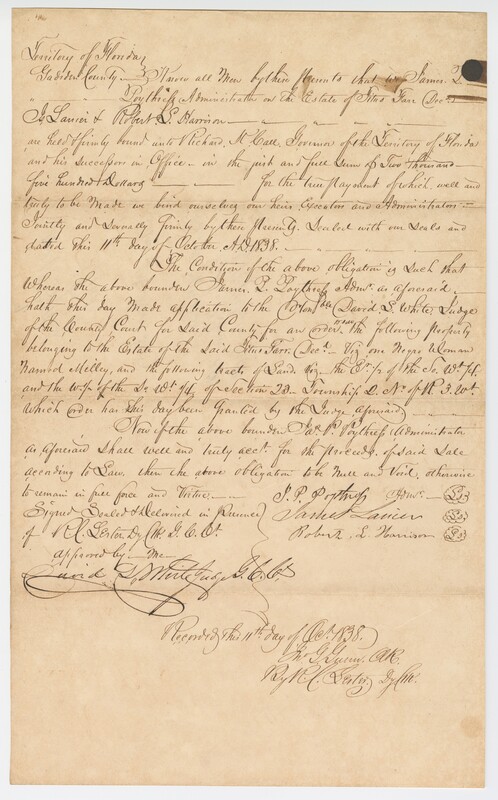 Territory of Florida
Gadsden County } Know all Men by these presents that we James P.
Poythress Administrator on the Estate of Titus Farr Decd.
Js Lanier & Robert L. Harrison
are held & firmly bound unto Richard K. Call Governor of the Territory of Florida
and his successors in Office - in the just and full sum of Two thousand
five hundred Dollars for the true payment of which well and
truly to be Made we bind ourselves our heirs Executors and Administrators
Jointly and Severally firmly by these Presents, Sealed with our seals and
dated this 11th day of October A.D. 1838.
The Condition of the above obligation is Such that
Whereas the above bounden James P. Poythress Admr. as aforesaid
hath this day Made application to the Honble David L. White Judge
of the County Court for Said County for an order to sell the following property
belonging to the Estate of the Said Titus Farr Decd. Viz one Negro Woman
Named Milley, and the following tracts of Land. Viz the E. ½ of the So. Wt. ¼
and the W. ½ of the So. Et. ¼ of Section 28 - Township 2. N. of R. 3. W.
Which order has this day been Granted by the Judge aforesaid
Now if the above bounden Jas. P. Poythress Administrator
as aforesaid Shall well and truly acct. for the proceeds of said Sale
according to Law. then the above obligation to be Null and Void, otherwise
to remain in full force and Virtue.
J. P. Poythress Admr.
Signed Sealed & Delivered in Presence James Lanier
of R. C. Lester Dy Clk G. C. Ct. Robert L. Harrison
approved by me
David L. White Judge G. C. Ct
Recorded this 11th day of Oct. 1838.
Tho G. Gunn, Clk.
By R. C. Lester, Dy Clk.